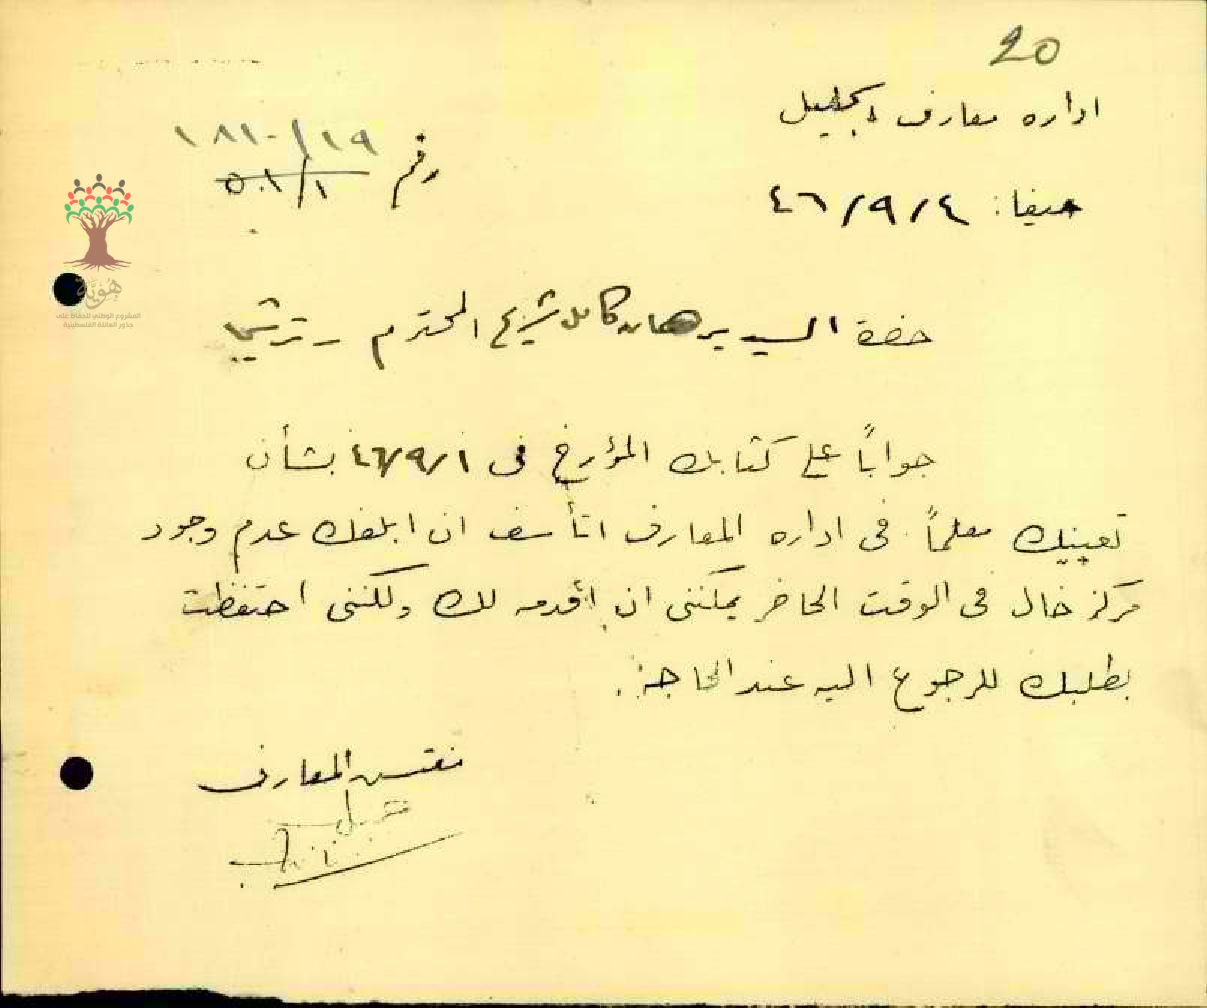 20
اداره معارف الجليل
رقم ١٩/١٨١٠
١/٥٠١
حيفا: ٤/٩/٤٦
هُوِيَّة
المشروع الوطني للحفاظ على
جذور العائلة الفلسطينية
حضرة السيد برهان كامل شريح المحترم - ترشيحا
جواباً على كتابك المؤرخ في ٤٦/٩/١ بشأن
تعيينك معلماً في اداره المعارف اتأسف ان ابلغك عدم وجود
مركز خال في الوقت الحاضر يمكنني ان أقدمه لك ولكنني احتفظت
بطلبك للرجوع اليه عند الحاجة.
مفتش المعارف